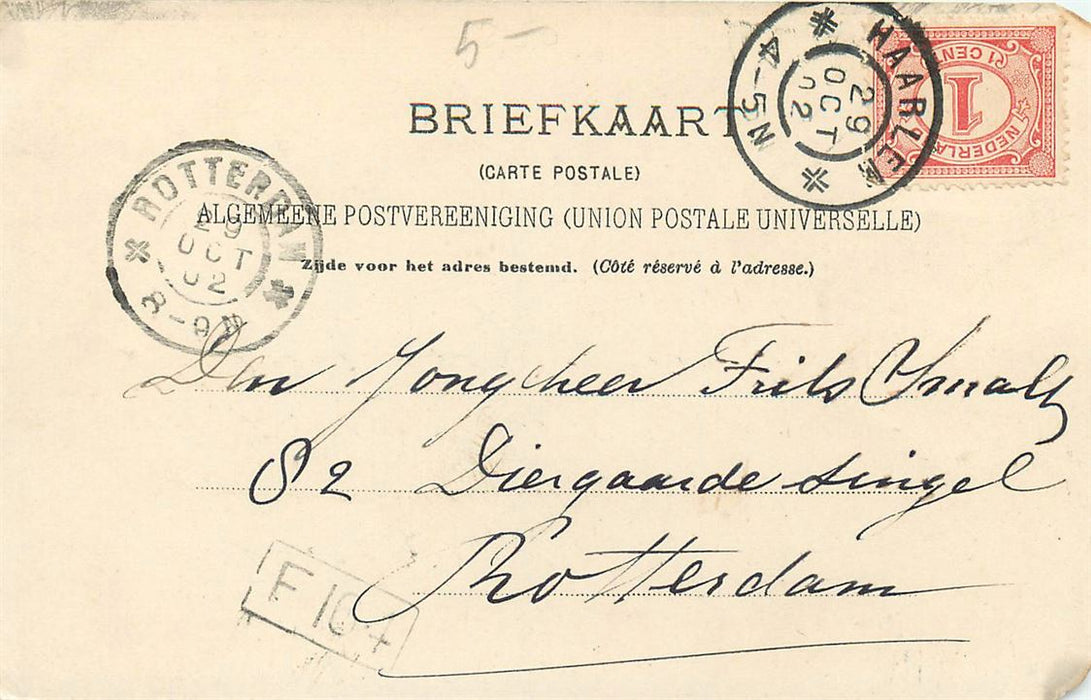 5-
BRIEFKAART
(CARTE POSTALE)
ALGEMEENE POSTVEREENIGING (UNION POSTALE UNIVERSELLE)
Zijde voor het adres bestemd. (Côté réservé à l'adresse.)
HAARLEM
4-5N
29
OCT
02
1 CENT
1
NEDERLA
ROTTERDAM
29
OCT
02
8-9N
Den Jongeheer Frits Smalt
82 Diergaarde singel
Rotterdam
F 104